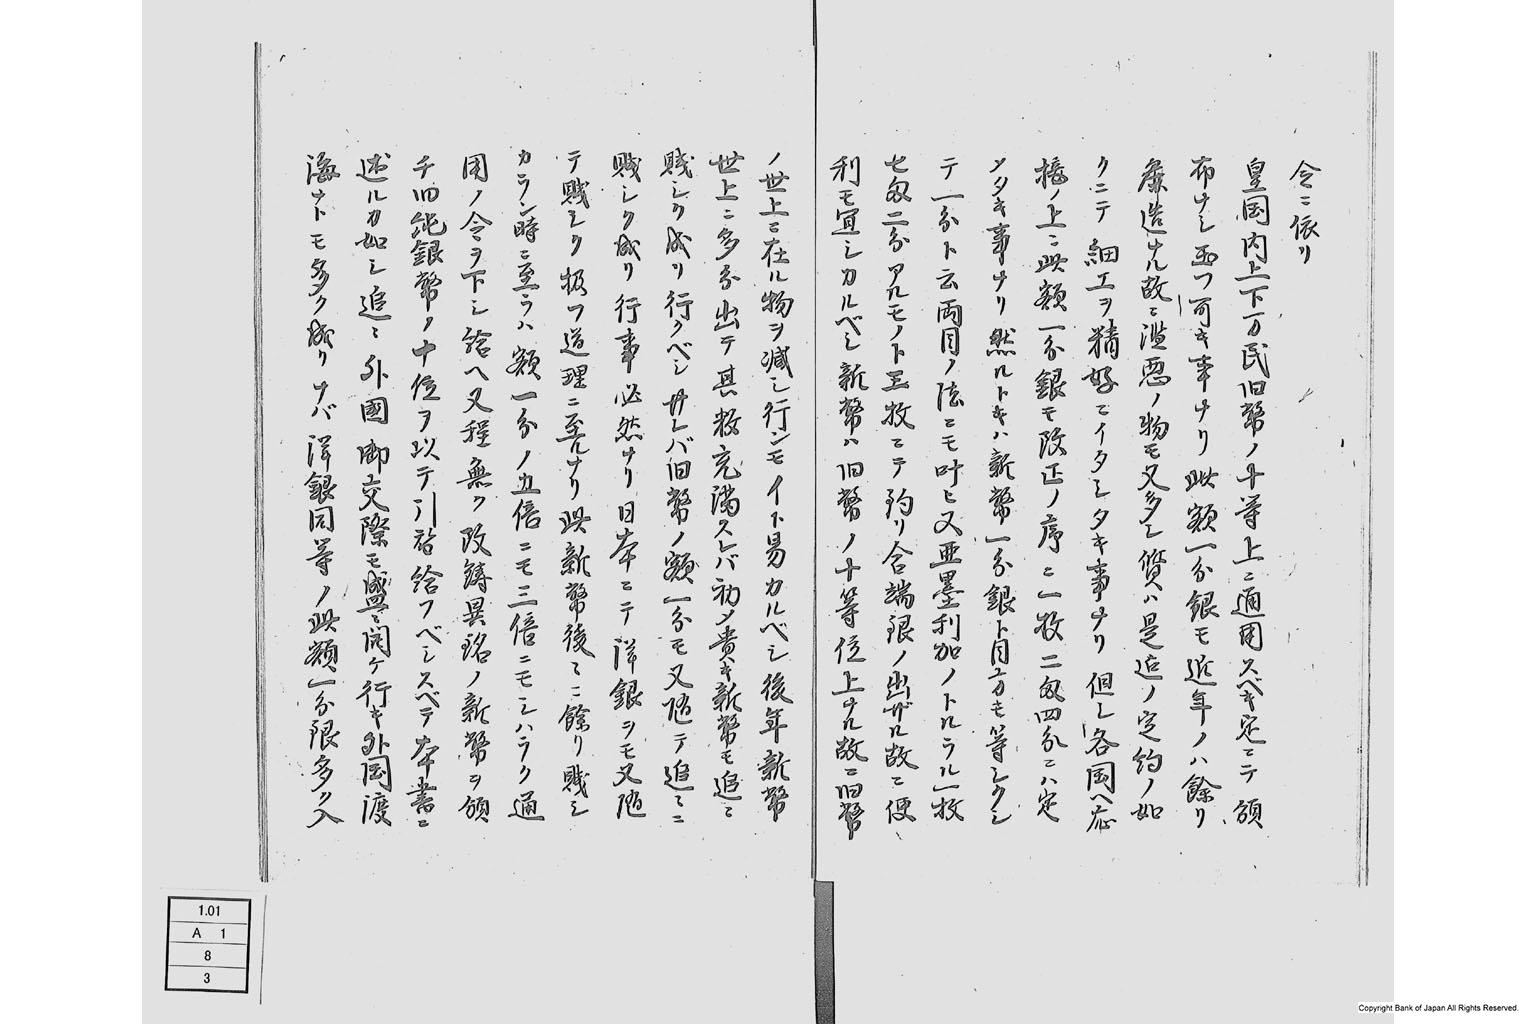 令ニ依リ
皇国内上下万民旧幣ノ十等上ニ通用スベキ定ニテ領
布ナシ玉フ可キ事ナリ此額一分銀モ近年ノハ餘リ
麁造ナル故ニ濫悪ノ物モ又多シ質ハ是迄ノ定約ノ如
クニテ細工ヲ精好ニイタシタキ事ナリ但し各国ヘ応
接ノ上ニ此額一分銀モ改正ノ序ニ一枚二匁四分ニハ定
メタキ事ナリ然ルトキハ新幣一分銀ト目方モ等シクシ
テ一分ト云両目ノ法ニモ叶ヒ又亜墨利加ノトルラル一枚
七匁二分アルモノト三枚ニテ釣リ合端銀ノ出ザル故ニ便
利モ宜シカルベシ新幣ハ旧幣ノ十等位上ナル故ニ旧幣
ノ世上ニ在ル物ヲ減シ行ンモイト易カルベシ後年新幣
世上ニ多分出テ其数充満スレバ初メ貴キ新幣モ追々ニ
賎シク成リ行クベシサレバ旧幣ノ額一分モ又随テ追々ニ
賎シク成リ行事必然ナリ日本ニテ洋銀ヲモ又随
テ賎シク扱フ道理ニ至ルナリ此新幣後々ニ餘リ賎シ
カラン時ニ至ラハ額一分ノ五倍ニモ三倍ニモシハラク通
用ノ令ヲ下シ給ヘ又程無ク改鋳異銘ノ新幣ヲ領
チ旧純銀幣ノ十位ヲ以テ引替給フベシスベテ本書ニ
述ルカ如シ追々外國御交際モ盛ニ開ケ行キ外国渡
海ナトモ多ク成リナバ洋銀同等ノ此額一分銀多ク入
1.01
A 1
8
3
Copyright Bank of Japan All Rights Reserved.